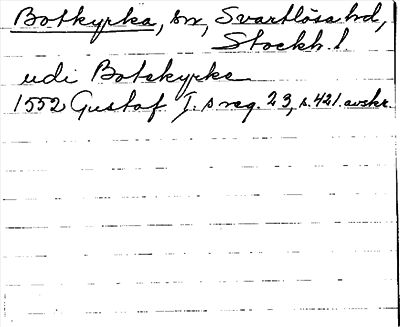 Botkyrka, sn, Svartlösa hd,
Stockh. l
udi Botskyrke
1552 Gustaf I.s reg. 23, s. 421. avskr.